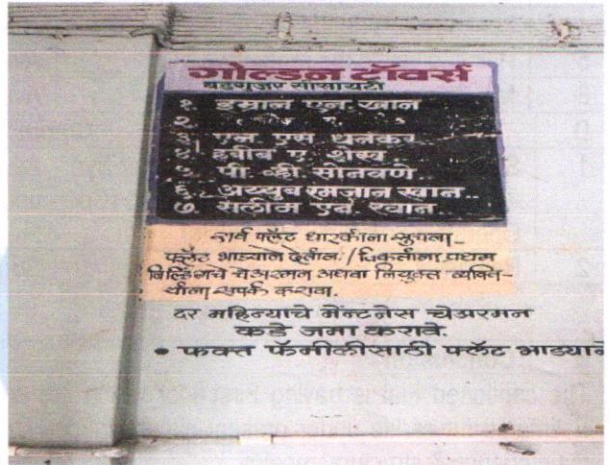 गोल्डन टॉवर्स
बडगुजर सोसायटी
१ इम्रान एन खान
२ " " " "
३ एल एस धनकर
४ हबीब ए शेख
५ पी. व्ही. सोनवणे..
६ अय्युब रमजान खान..
७ सलीम एन. खान..
सर्व फ्लॅट धारकांना सुचना..
फ्लॅट भाड्याने देतांना / विकतांना प्रथम
बिल्डिंगचे चेअरमन अथवा नियुक्त व्यक्ति-
यांना संपर्क करावा.
दर महिन्याचे मेंन्टनेस चेअरमन
कडे जमा करावे.
• फक्त फॅमीलीसाठी फ्लॅट भाड्याने